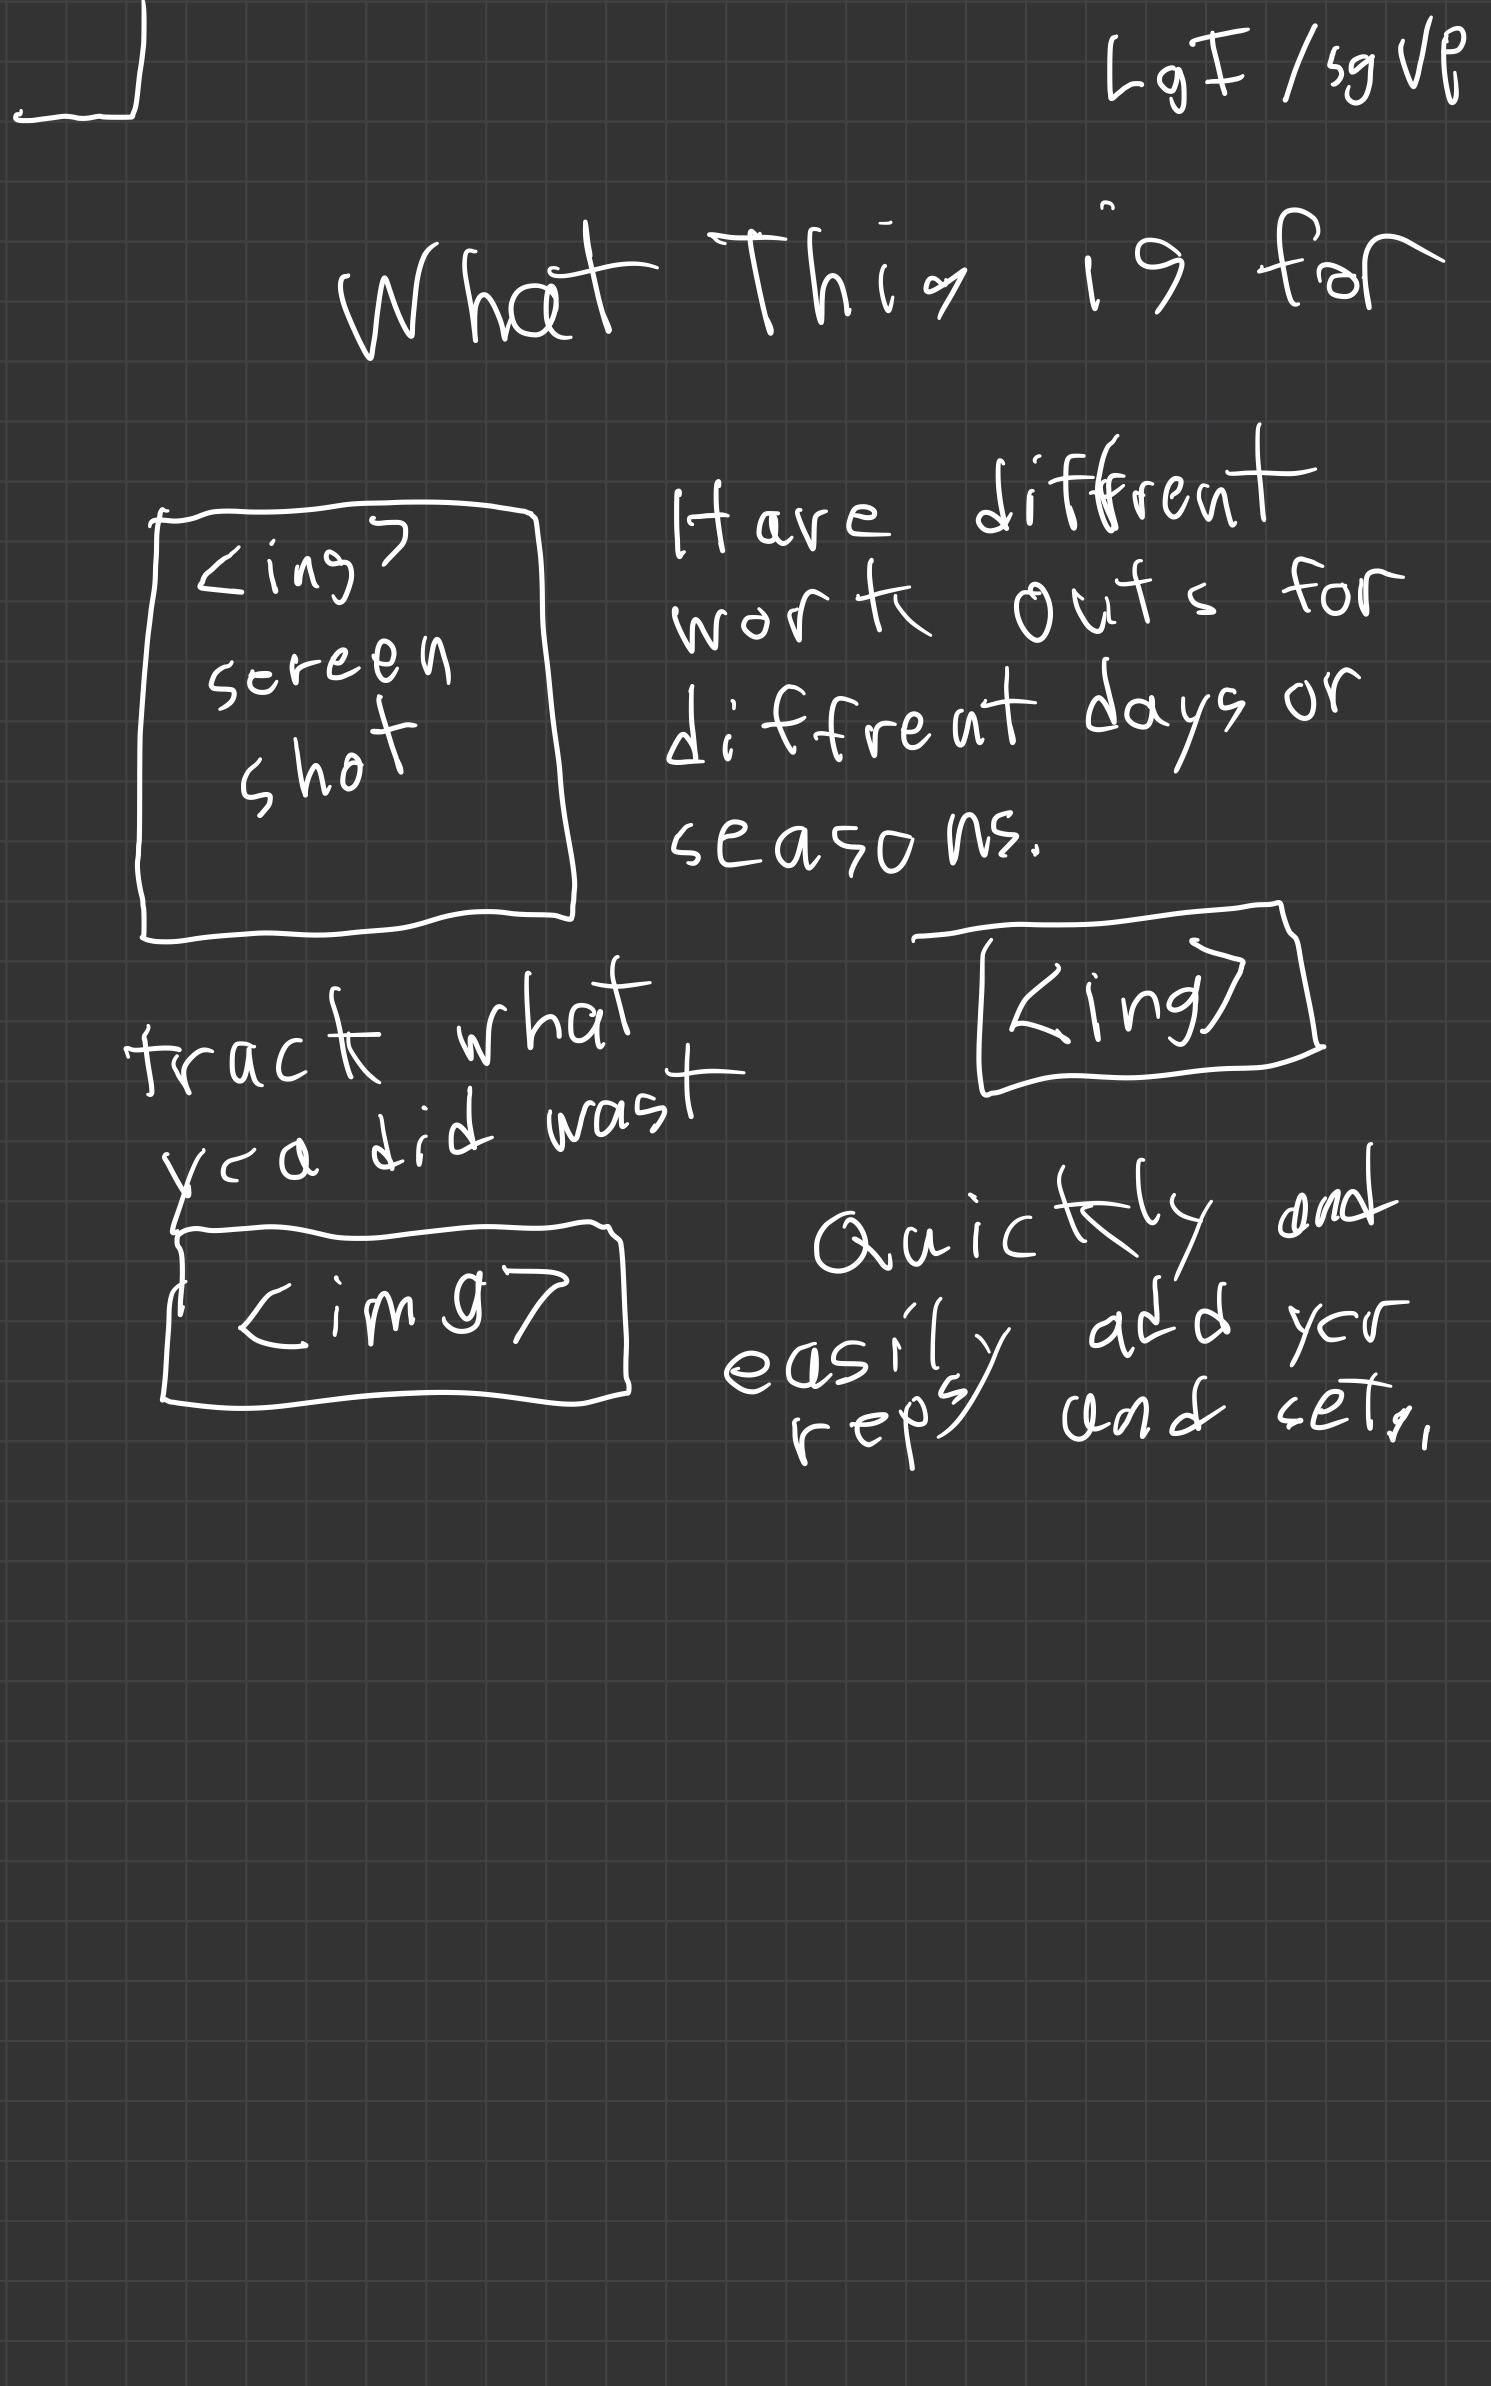 LgI / sgUP
What This is for
<ing>
screen
shot
Have different
work outs for
diffrent days or
seasons.
<ing>
track what
you did wast
<img>
Quickly and
easily add your
reps and sets.